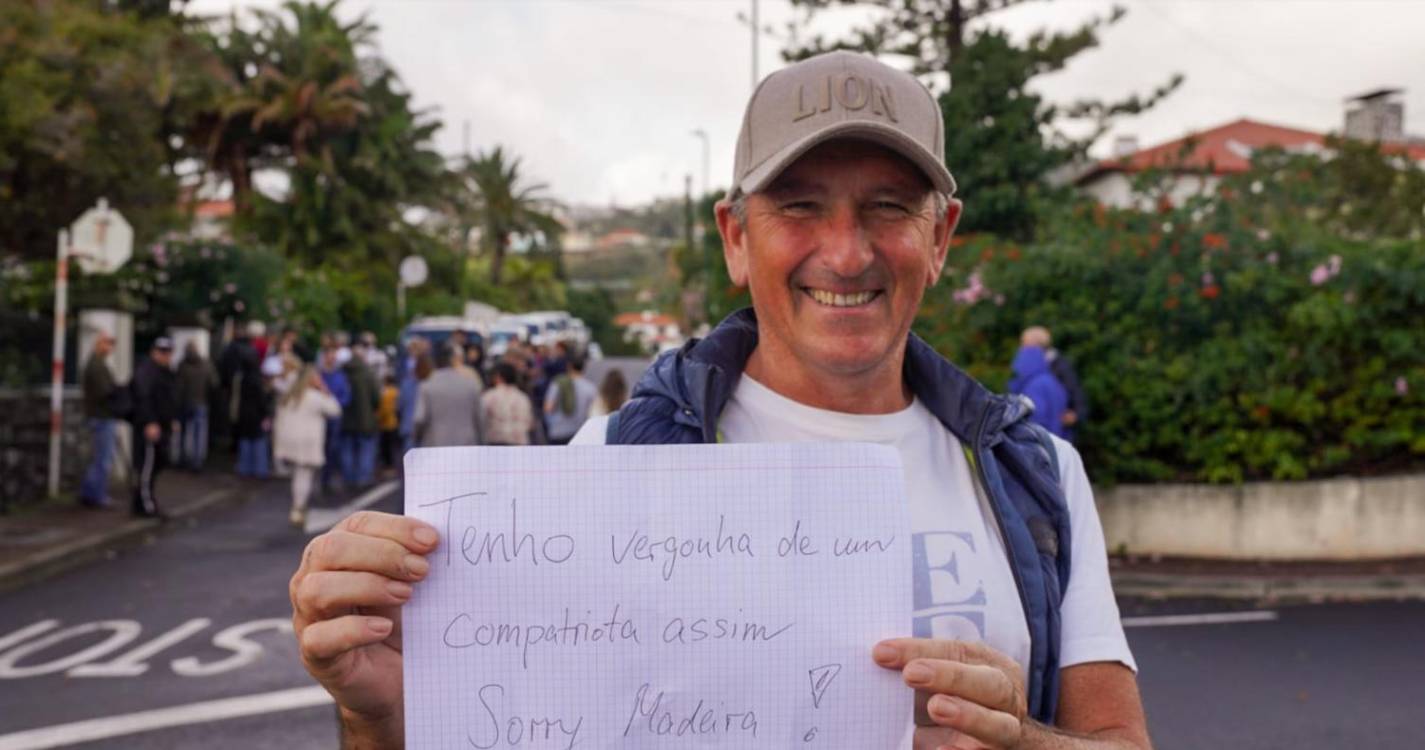 LION
Tenho vergonha de um
compatriota assim
Sorry Madeira !
E
STOP